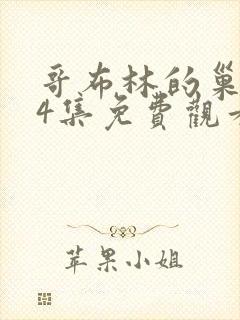 哥布林的巢
4集免費觀
苹果小姐